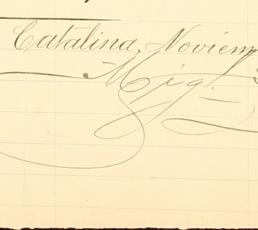 Catalina, Noviem
Mig!